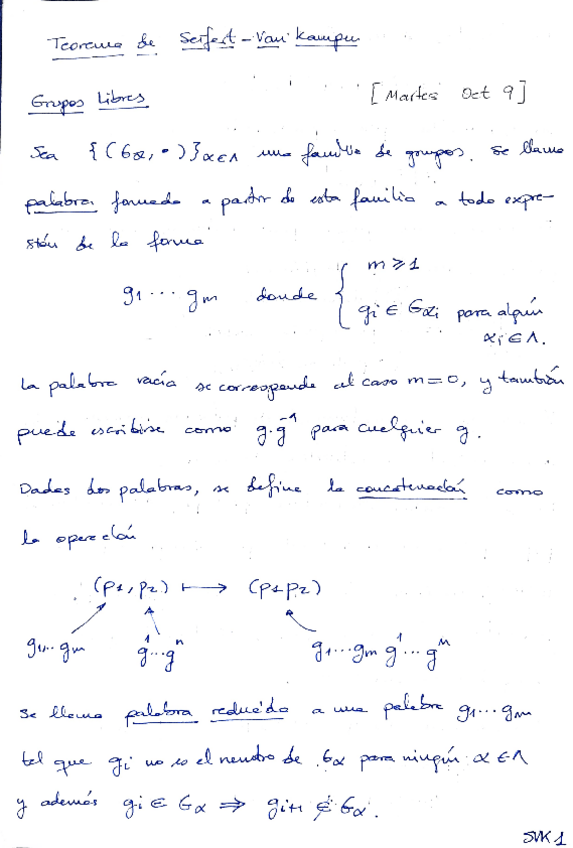 Teorema de Seifert-Van Kampen
Grupos Libres [Martes Oct 9]
Sea {(Gα, ·)}α∈Λ una familia de grupos. Se llama
palabra formada a partir de esta familia a toda expre-
sión de la forma
g1 ··· gm donde { m ≥ 1
gi ∈ Gαi para algún
αi ∈ Λ.
La palabra vacía se corresponde al caso m=0, y también
puede escribirse como g·g⁻¹ para cualquier g.
Dadas dos palabras, se define la concatenación como
la operación
(p1, p2) ⟼ (p1p2)
g1...gm g¹...gⁿ g1...gm g¹...gⁿ
Se llama palabra reducida a una palabra g1...gm
tal que gi no es el neutro de Gα para ningún α ∈ Λ
y además gi ∈ Gα ⇒ gi+1 ∉ Gα.
SVK 1